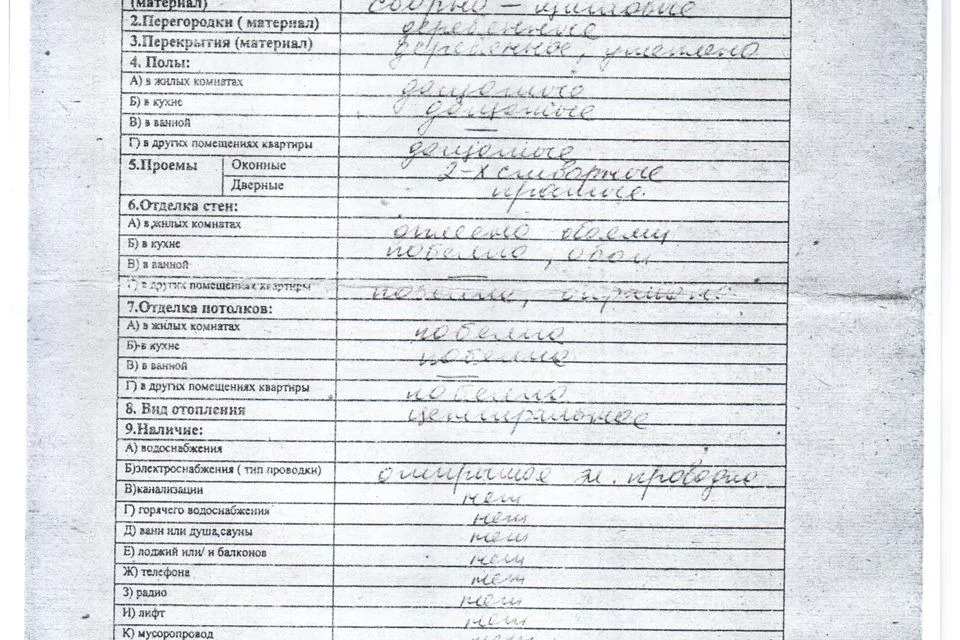 (материал) сборно - щитовые
2.Перегородки ( материал) деревенные
3.Перекрытия (материал) деревенное, утеплено
4. Полы:
А) в жилых комнатах дощатые
Б) в кухне дощатые
В) в ванной —
Г) в других помещениях квартиры дощатые
5.Проемы Оконные 2-х створчатые
Дверные простые
6.Отделка стен:
А) в жилых комнатах оклеено обоями
Б) в кухне побелка, обои
В) в ванной —
Г) в других помещениях квартиры побелка,
7.Отделка потолков:
А) в жилых комнатах побелка
Б) в кухне побелка
В) в ванной —
Г) в других помещениях квартиры побелка
8. Вид отопления центральное
9.Наличие:
А) водоснабжения
Б)электроснабжения ( тип проводки) открытая эл. проводка
В)канализации нет
Г) горячего водоснабжения нет
Д) ванн или душа,сауны нет
Е) лоджий или/ и балконов нет
Ж) телефона нет
З) радио нет
И) лифт нет
К) мусоропровод нет